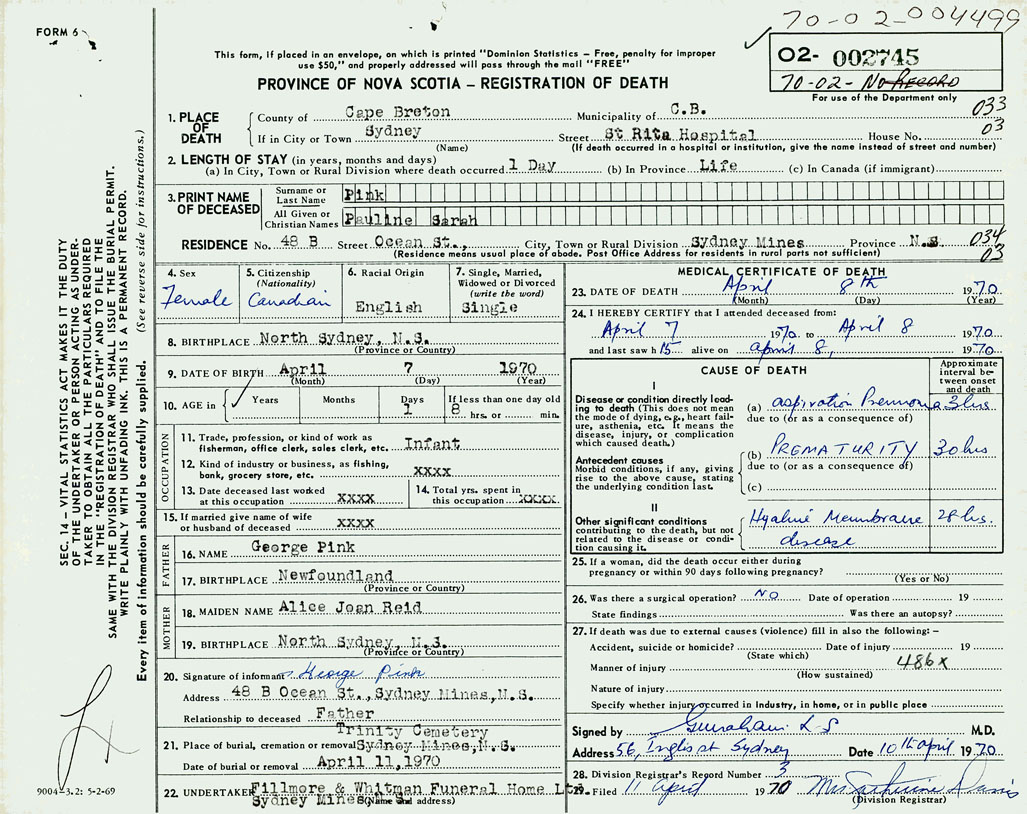 70-02-004499
FORM 6
O2- 002745
70-02- No RECORD
For use of the Department only
This form, if placed in an envelope, on which is printed "Dominion Statistics – Free, penalty for improper
use $50," and properly addressed will pass through the mail "FREE"
PROVINCE OF NOVA SCOTIA – REGISTRATION OF DEATH
033
03
1. PLACE OF DEATH
County of Cape Breton Municipality of C.B.
If in City or Town Sydney Street St Rita Hospital House No.
(Name) (If death occurred in a hospital or institution, give the name instead of street and number)
2. LENGTH OF STAY (in years, months and days)
(a) In City, Town or Rural Division where death occurred 1 Day (b) In Province Life (c) In Canada (if immigrant)
3. PRINT NAME OF DECEASED
Surname or Last Name Pink
All Given or Christian Names Pauline Sarah
RESIDENCE No. 48 B Street Ocean St., City, Town or Rural Division Sydney Mines Province N.S
034
03
(Residence means usual place of abode. Post Office Address for residents in rural parts not sufficient)
4. Sex
Female
5. Citizenship
(Nationality)
Canadian
6. Racial Origin
English
7. Single, Married,
Widowed or Divorced
(write the word)
Single
8. BIRTHPLACE North Sydney, N.S.
(Province or Country)
9. DATE OF BIRTH April 7 1970
(Month) (Day) (Year)
10. AGE in Years Months Days 1 If less than one day old
8 hrs. or min.
OCCUPATION
11. Trade, profession, or kind of work as
fisherman, office clerk, sales clerk, etc. Infant
12. Kind of industry or business, as fishing,
bank, grocery store, etc. XXXX
13. Date deceased last worked
at this occupation XXXX
14. Total yrs. spent in
this occupation XXXX
15. If married give name of wife
or husband of deceased XXXX
FATHER
16. NAME George Pink
17. BIRTHPLACE Newfoundland
(Province or Country)
MOTHER
18. MAIDEN NAME Alice Joan Reid
19. BIRTHPLACE North Sydney, N.S.
(Province or Country)
20. Signature of informant George Pink
Address 48 B Ocean St., Sydney Mines, N.S.
Relationship to deceased Father
Trinity Cemetery
21. Place of burial, cremation or removal Sydney Mines, N.S.
Date of burial or removal April 11, 1970
22. UNDERTAKER Fillmore & Whitman Funeral Home Ltd.
Sydney Mines
(Name and address)
MEDICAL CERTIFICATE OF DEATH
23. DATE OF DEATH April 8th 1970
(Month) (Day) (Year)
24. I HEREBY CERTIFY that I attended deceased from:
April 7 1970 to April 8 1970
and last saw h alive on april 8, 1970
CAUSE OF DEATH
Approximate
interval be-
tween onset
and death
I
Disease or condition directly lead-
ing to death (This does not mean
the mode of dying, e.g., heart fail-
ure, asthenia, etc. It means the
disease, injury, or complication
which caused death.)
(a) aspiration Pneumonia 3 hrs
due to (or as a consequence of)
Antecedent causes
Morbid conditions, if any, giving
rise to the above cause, stating
the underlying condition last.
(b) PREMATURITY 30 hrs
due to (or as a consequence of)
(c)
II
Other significant conditions
contributing to the death, but not
related to the disease or condi-
tion causing it.
Hyaline Membrane 28 hrs.
disease
25. If a woman, did the death occur either during
pregnancy or within 90 days following pregnancy?
(Yes or No)
26. Was there a surgical operation? NO Date of operation 19
State findings Was there an autopsy?
27. If death was due to external causes (violence) fill in also the following: –
Accident, suicide or homicide? Date of injury 19
(State which)
486x
Manner of injury
(How sustained)
Nature of injury
Specify whether injury occurred in Industry, in home, or in public place
Signed by M.D.
Address 56, Inglis st Sydney Date 10th april 1970
28. Division Registrar's Record Number 3
29. Filed 11 April 1970 Mrs
(Division Registrar)
SEC. 14 – VITAL STATISTICS ACT MAKES IT THE DUTY
OF THE UNDERTAKER OR PERSON ACTING AS UNDER-
TAKER TO OBTAIN ALL THE PARTICULARS REQUIRED
IN THE "REGISTRATION OF DEATH" AND TO FILE THE
SAME WITH THE DIVISION REGISTRAR WHO SHALL ISSUE THE BURIAL PERMIT.
WRITE PLAINLY WITH UNFADING INK. THIS IS A PERMANENT RECORD.
Every item of information should be carefully supplied. (See reverse side for instructions.)
9004-3.2: 5-2-69